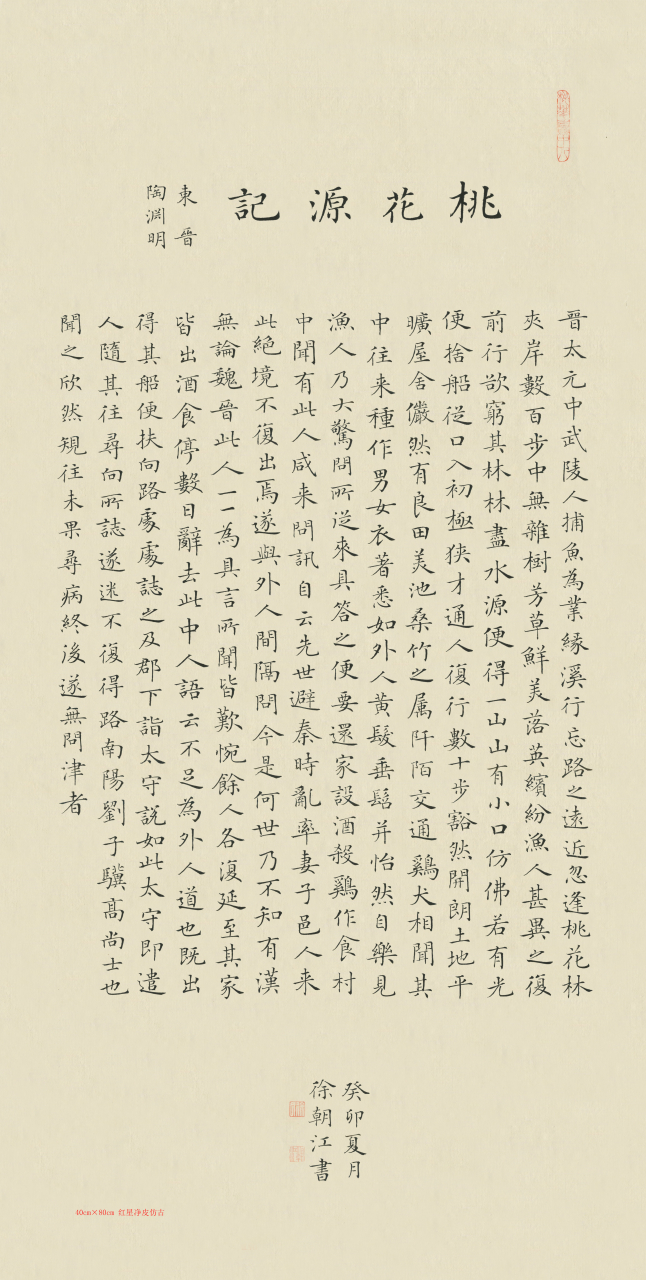 桃花源記
東晉
陶淵明
晋太元中武陵人捕魚為業緣溪行忘路之遠近忽逢桃花林
夾岸數百步中無雜樹芳草鮮美落英繽紛漁人甚異之復
前行欲窮其林林盡水源便得一山山有小口仿佛若有光
便捨船從口入初極狹才通人復行數十步豁然開朗土地平
曠屋舍儼然有良田美池桑竹之属阡陌交通鷄犬相聞其
中往来種作男女衣著悉如外人黄髮垂髫并怡然自樂見
漁人乃大驚問所從來具答之便要還家設酒殺鷄作食村
中聞有此人咸来問訊自云先世避秦時亂率妻子邑人来
此絕境不復出焉遂與外人間隔問今是何世乃不知有漢
無論魏晋此人一一為具言所聞皆歎惋餘人各復延至其家
皆出酒食停數日辭去此中人語云不足為外人道也既出
得其船便扶向路處處誌之及郡下詣太守説如此太守即遣
人隨其往尋向所誌遂迷不復得路南陽劉子驥高尚士也
聞之欣然規往未果尋病終後遂無問津者
癸卯夏月
徐朝江書
40cm×80cm 红星净皮仿古